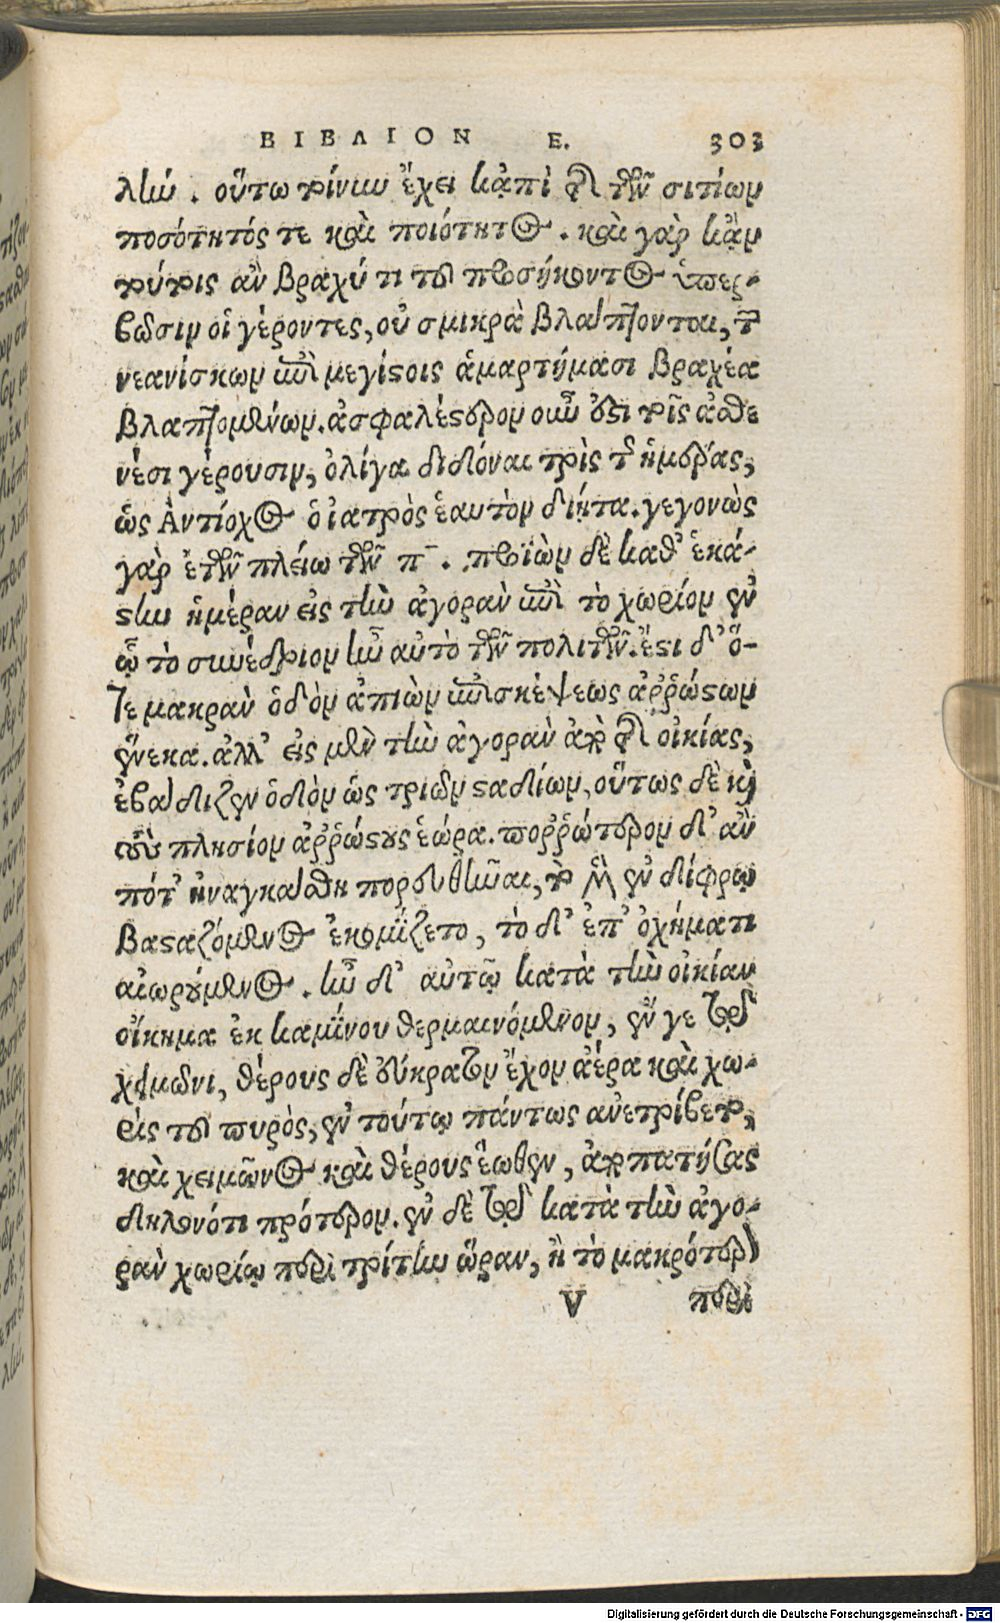 ΒΙΒΛΙΟΝ Ε. 303
λίω. οὕτω τοίνυν ἔχει κἀπὶ τῆς τῶν σιτίων
ποσότητός τε καὶ ποιότητος. καὶ γὰρ κἂν
τούτοις ἂν βραχύ τι τοῦ προσήκοντος ὑπερ-
βῶσιν οἱ γέροντες, οὐ σμικρὰ βλάπτονται, τῶν
νεανίσκων ἐπὶ μεγίστοις ἁμαρτήμασι βραχέα
βλαπτομένων. ἀσφαλέστερον οὖν ἐστι τοῖς ἀσθε
νέσι γέρουσιν, ὀλίγα διδόναι τρὶς τῆς ἡμέρας,
ὡς Ἀντίοχος ὁ ἰατρὸς ἑαυτὸν διῄτα. γεγονὼς
γὰρ ἐτῶν πλείω τῶν π̄. προϊὼν δὲ καθ' ἑκά-
στην ἡμέραν εἰς τὴν ἀγορὰν ἐπὶ τὸ χωρίον ἐν
ᾧ τὸ συνέδριον ἦν αὐτὸ τῶν πολιτῶν. ἔστι δ' ὅ-
τε μακρὰν ὁδὸν ἀπιὼν ἐπισκέψεως ἀῤῥώστων
ἕνεκα. ἀλλ' εἰς μὲν τὴν ἀγορὰν ἀπὸ τῆς οἰκίας,
ἐβάδιζεν ὁδὸν ὡς τριῶν σταδίων, οὕτως δὲ καὶ
τοὺς πλησίον ἀῤῥώστους ἑώρα. ποῤῥώτερον δ' ἄν
πότ' ἠναγκάσθη πορευθῆναι, τὸ μὲν ἐν δίφρῳ
βασταζόμενος ἐκομίζετο, τὸ δ' ἐπ' ὀχήματι
αἰωρούμενος. ἦν δ' αὐτῷ κατὰ τὴν οἰκίαν
οἴκημα ἐκ καμίνου θερμαινόμενον, ἔν γε τῷ
χειμῶνι, θέρους δὲ εὔκρατον ἔχον ἀέρα καὶ χω-
ρὶς τοῦ πυρὸς, ἐν τούτῳ πάντως ἀνετρίβετο,
καὶ χειμῶνος καὶ θέρους ἕωθεν, ἀποπατήσας
δηλονότι πρότερον. ἐν δὲ τῷ κατὰ τὴν ἀγο-
ρὰν χωρίῳ περὶ τρίτην ὥραν, ἢ τὸ μακρότερον
V περὶ
Digitalisierung gefördert durch die Deutsche Forschungsgemeinschaft - DFG